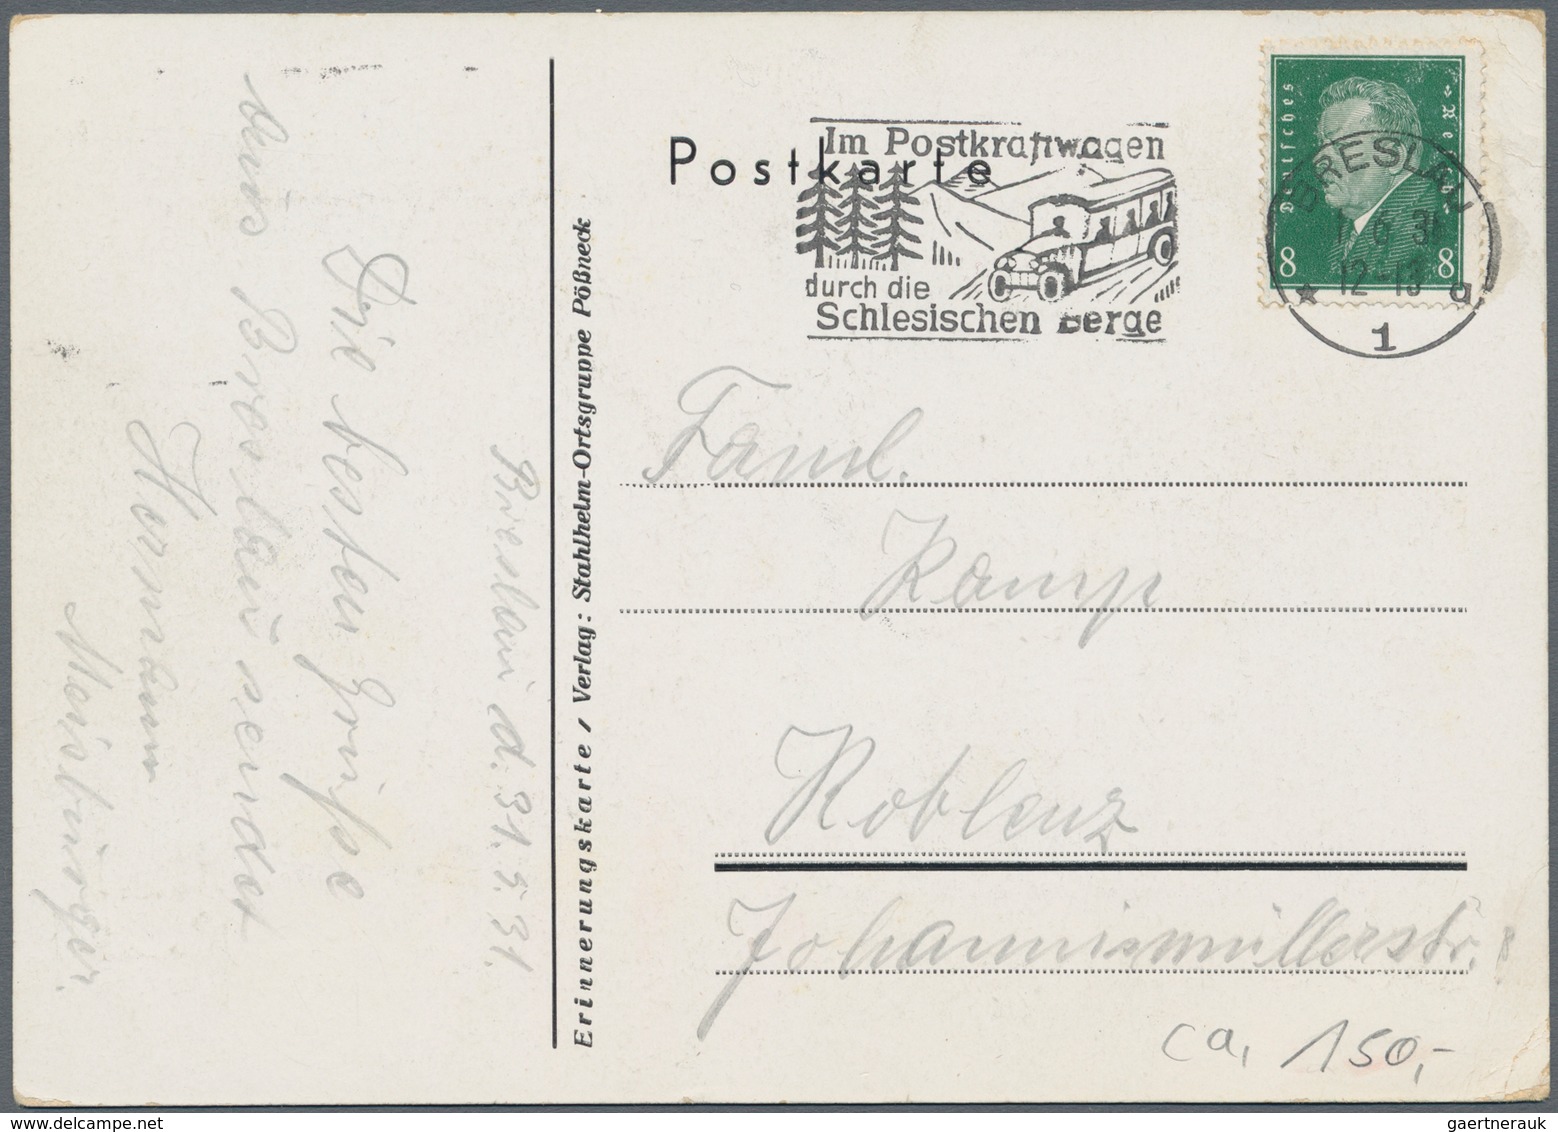 Postkarte
Im Postkraftwagen
durch die
Schlesischen Berge
Deutsches Reich
8 8
BRESLAU
1. 6. 31
12-13
* 1 a
Erinnerungskarte / Verlag: Stahlhelm-Ortsgruppe Pößneck
Breslau d. 31. 5. 31.
Die besten Grüße
aus Breslau sendet
Hermann
Meisburger.
Faml.
Kamp
Koblenz
Johannismüllerstr. 8
ca, 150,-
gaertnerauk